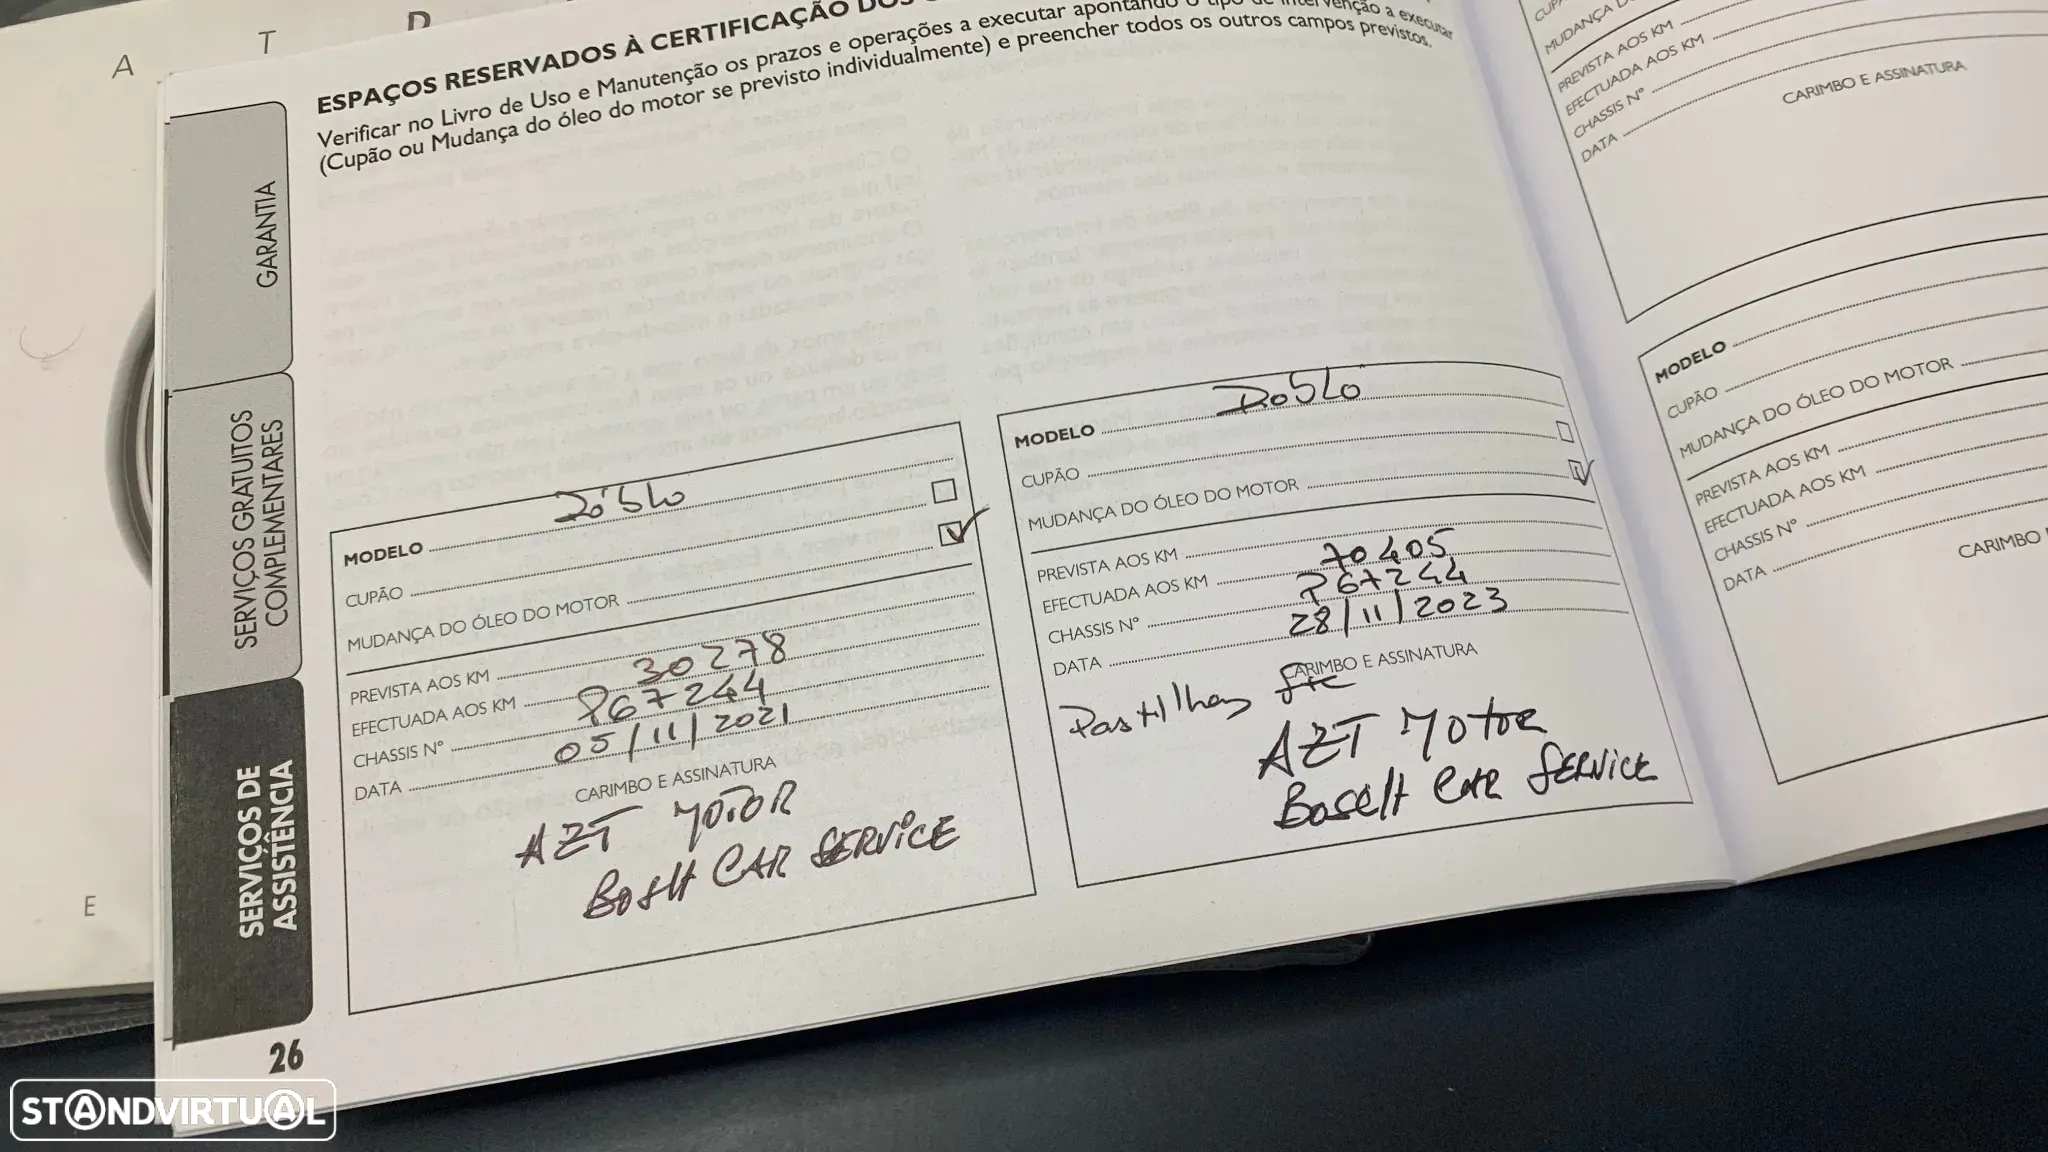 A
T
D
E
ESPAÇOS RESERVADOS À CERTIFICAÇÃO DOS
Verificar no Livro de Uso e Manutenção os prazos e operações a executar apontando o tipo de intervenção a executar
(Cupão ou Mudança do óleo do motor se previsto individualmente) e preencher todos os outros campos previstos.
GARANTIA
SERVIÇOS GRATUITOS
COMPLEMENTARES
SERVIÇOS DE
ASSISTÊNCIA
MODELO Dóblo
CUPÃO
MUDANÇA DO ÓLEO DO MOTOR
PREVISTA AOS KM
EFECTUADA AOS KM 30278
CHASSIS Nº P67244
DATA 05/11/2021
CARIMBO E ASSINATURA
AZT MOTOR
BOSCH CAR SERVICE
MODELO Doblo
CUPÃO
MUDANÇA DO ÓLEO DO MOTOR
PREVISTA AOS KM
EFECTUADA AOS KM 70405
CHASSIS Nº P67244
DATA 28/11/2023
CARIMBO E ASSINATURA
Pastilhas
AZT MOTOR
BOSCH CAR SERVICE
26
MUDANÇA D
PREVISTA AOS KM
EFECTUADA AOS KM
CHASSIS Nº
DATA
CARIMBO E ASSINATURA
MODELO
CUPÃO
MUDANÇA DO ÓLEO DO MOTOR
PREVISTA AOS KM
EFECTUADA AOS KM
CHASSIS Nº
DATA
CARIMBO
STANDVIRTUAL